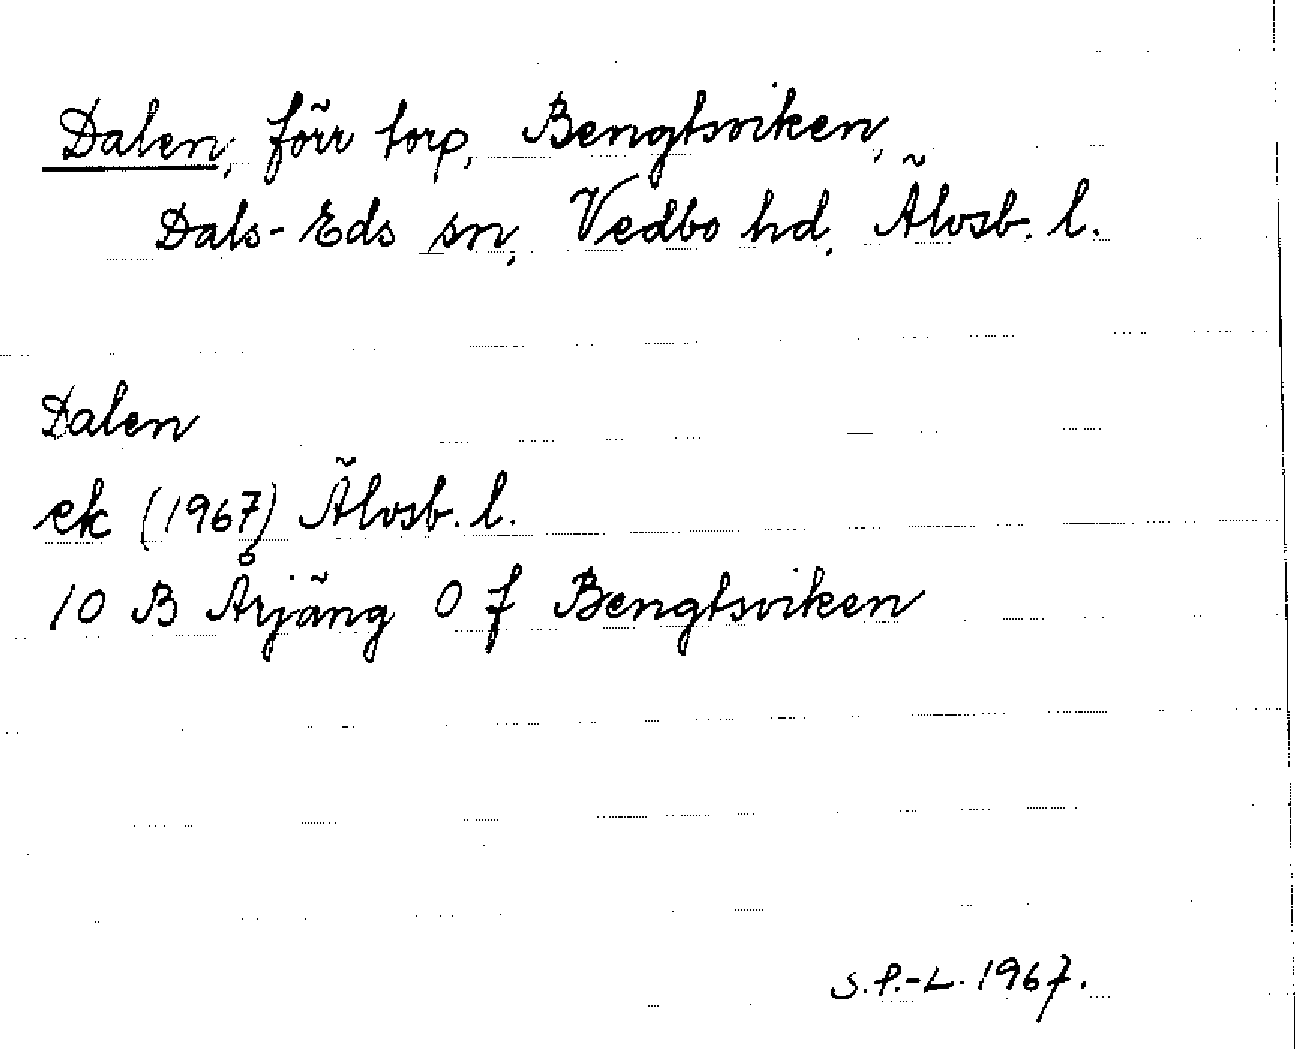 Dalen, förr torp, Bengtsviken,
Dals-Eds sn, Vedbo hd, Älvsb. l.
Dalen
ek (1967) Älvsb. l.
10 B Årjäng 0 f Bengtsviken
S.P.-L. 1967.